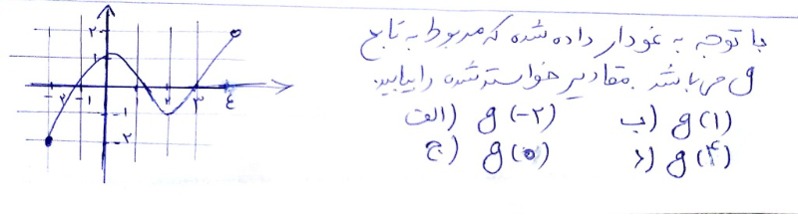 با توجه به نمودار داده شده که مربوط به تابع
g می‌باشد. مقادیر خواسته شده را بیابید.
الف) g(-۲)   ب) g(1)
ج) g(0)   د) g(۴)
۲
1
-۲ -1 ۲ ۳ ٤
-1
-۲